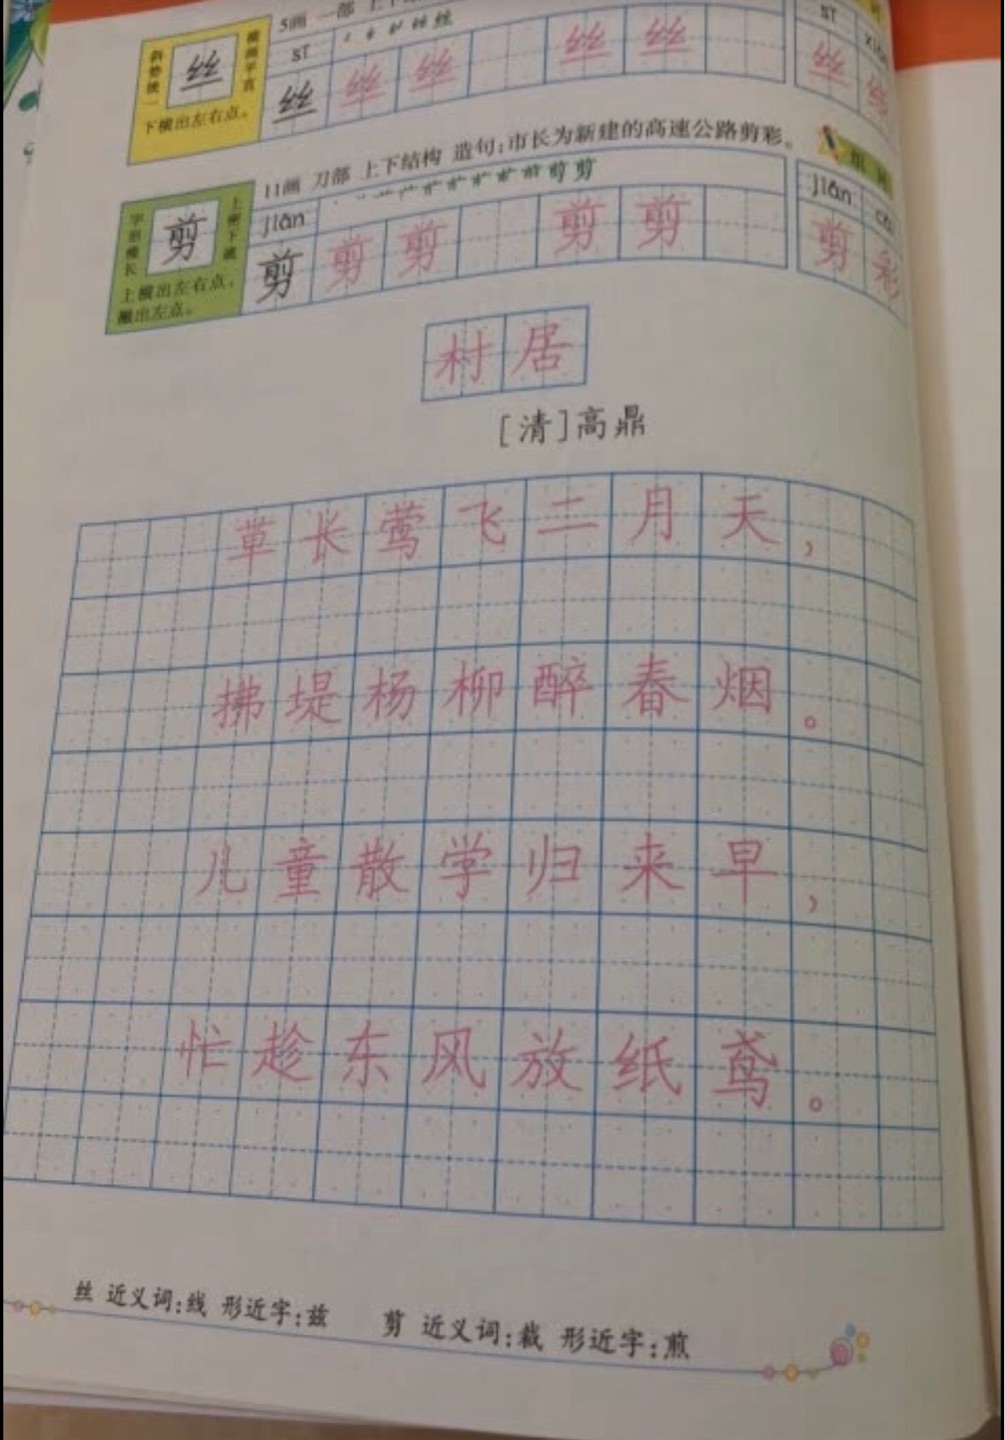 5画 一部 上下
sī
丝 丝 丝 丝 丝
丝
斜势统一
横画平直
下横出左右点。
sī
丝
11画 刀部 上下结构 造句:市长为新建的高速公路剪彩。
jiǎn
剪 剪 剪 剪 剪
剪
字形瘦长
上密下疏
上横出左右点,
撇出左点。
组词
jiǎn cǎi
剪彩
村居
[清]高鼎
草长莺飞二月天,
拂堤杨柳醉春烟。
儿童散学归来早,
忙趁东风放纸鸢。
丝 近义词:线 形近字:兹 剪 近义词:裁 形近字:煎